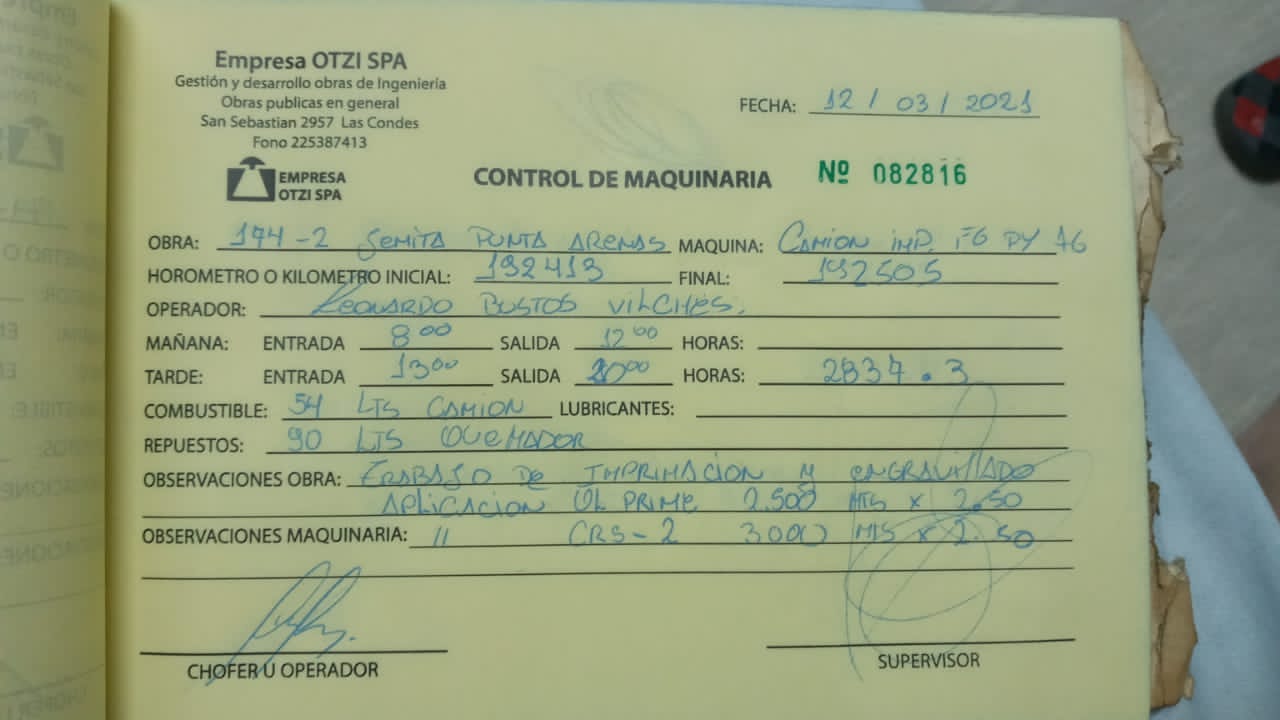 Empresa OTZI SPA
Gestión y desarrollo obras de Ingeniería
Obras publicas en general
San Sebastian 2957 Las Condes
Fono 225387413
EMPRESA
OTZI SPA
FECHA: 12 / 03 / 2021
CONTROL DE MAQUINARIA Nº 082816
OBRA: 174-2 SEMITA PUNTA ARENAS MAQUINA: CAMION IMP. FG PY 76
HOROMETRO O KILOMETRO INICIAL: 192413 FINAL: 192505
OPERADOR: LEONARDO BUSTOS VILCHES.
MAÑANA: ENTRADA 8 00 SALIDA 12 00 HORAS:
TARDE: ENTRADA 13 00 SALIDA 20 00 HORAS: 2837.3
COMBUSTIBLE: 54 LTS CAMION LUBRICANTES:
REPUESTOS: 90 LTS QUEMADOR
OBSERVACIONES OBRA: TRABAJO DE IMPRIMACION Y ENGRAVILLADO
APLICACION QL PRIME 2.500 MTS x 2.50
OBSERVACIONES MAQUINARIA: 11 CRS-2 3000 MTS x 2.50
CHOFER U OPERADOR
SUPERVISOR